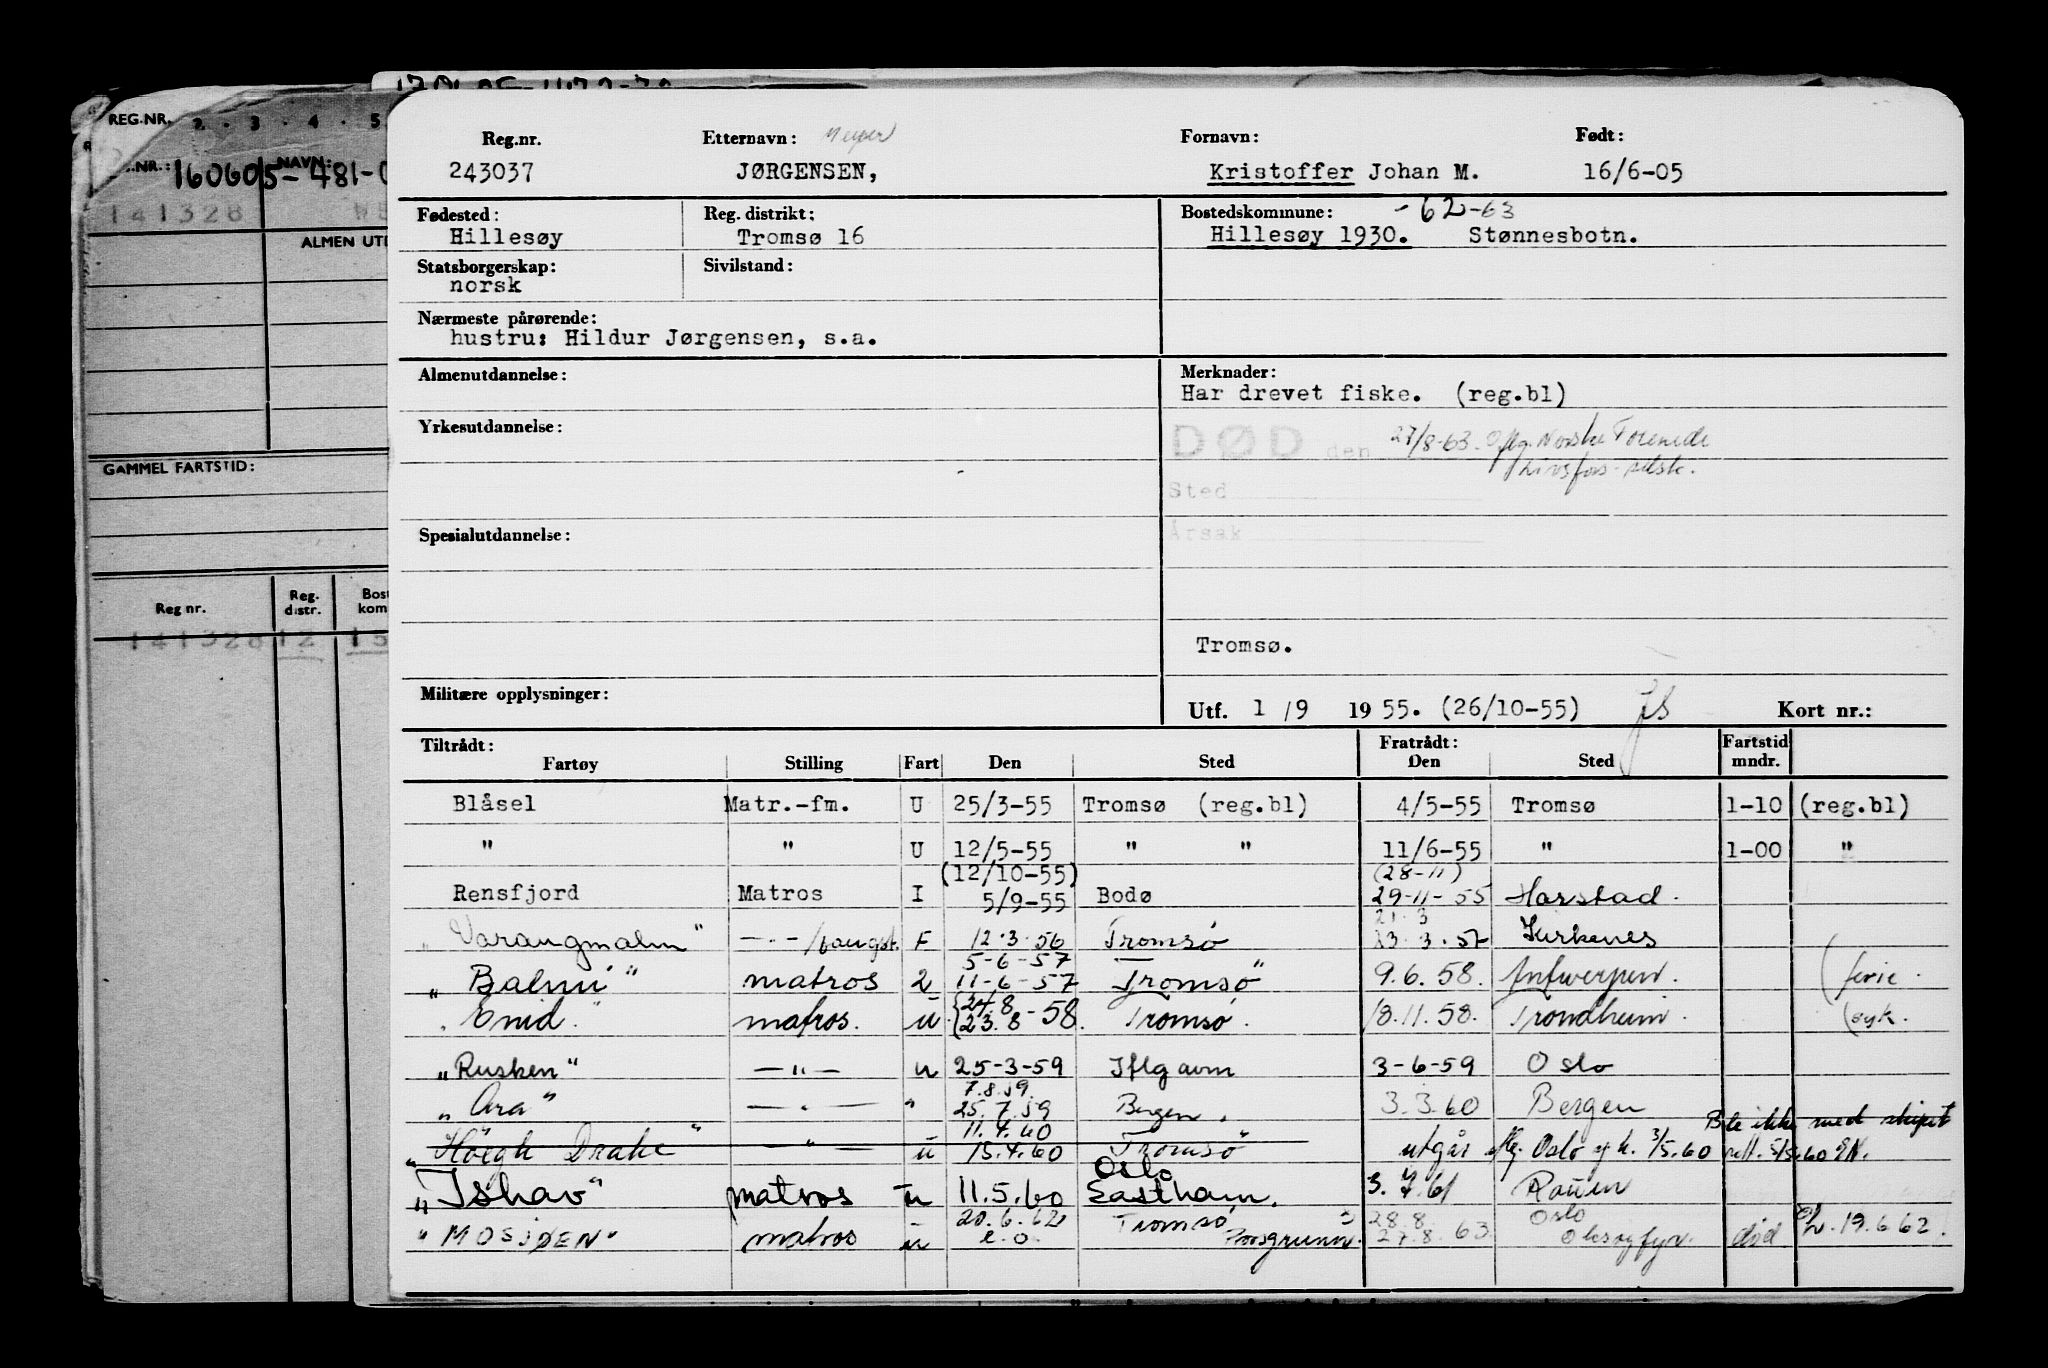 REG.NR.
2 · 3 · 4 · 5
NR.: 160605- NAVN: 481-0
141328
ALMEN UT
GAMMEL FARTSTID:
Reg nr. Reg. distr. Bost kom
141328 12 15
Reg.nr. Etternavn: Meyer Fornavn: Født:
243037 JØRGENSEN, Kristoffer Johan M. 16/6-05
Fødested: Reg. distrikt: Bostedskommune: -62-63
Hillesøy Tromsø 16 Hillesøy 1930. Stønnesbotn.
Statsborgerskap: Sivilstand:
norsk
Nærmeste pårørende:
hustru: Hildur Jørgensen, s.a.
Almenutdannelse: Merknader:
Har drevet fiske. (reg.bl)
Yrkesutdannelse:
DØD den 27/8-63. Iflg. Norske Forenede
Livsfors.
Sted
Spesialutdannelse: Årsak
Tromsø.
Militære opplysninger:
Utf. 1 /9 1955. (26/10-55) Kort nr.:
Tiltrådt: Fratrådt: Fartstid
Fartøy Stilling Fart Den Sted Den Sted mndr.
Blåsel Matr.-fm. U 25/3-55 Tromsø (reg.bl) 4/5-55 Tromsø 1-10 (reg.bl)
" " U 12/5-55 " " 11/6-55 " 1-00 "
(12/10-55) (28-11)
Rensfjord Matros I 5/9-55 Bodø 29-11-55 Harstad.
21.3
"Varangmalm" -.-/fangst. F 12.3.56 Tromsø 13.3.57 Kirkenes
5-6-57
"Balmi" matros U 11-6-57 Tromsø 9.6.58. Antwerpen. (ferie.
24.8
"Enid." matros. u. 23.8-58. Tromsø. 18.11.58. Trondheim. (syk.
"Rusken" —"— u 25-3-59 Iflg avm 3-6-59 Oslo
7.8.59.
"Ara" —"— " 25.7.59 Bergen. 3.3.60 Bergen
11.4.60 Ble ikke med skipet
"Höegh Drake" —"— u 15.4.60 Tromsø utgår iflg. Oslo s.k. 3/5.60 rett. 5/5.60
Oslo
"Ishav" matros u 11.5.60 Eastham. 3.7.61 Rouen
20.6.62 Tromsø 28.8. Oslo
"MOSJØEN" matros u e.o. Porsgrunn. 27.8.63 død 19.6.62.